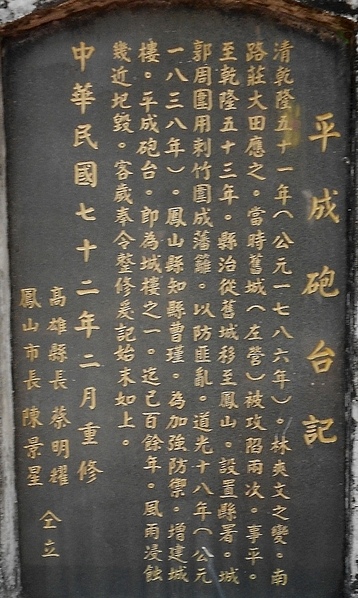 平成砲台記
清乾隆五十一年(公元一七八六年)。林爽文之變。南
路莊大田應之。當時舊城(左營)被攻陷兩次。事平。
至乾隆五十三年。縣治從舊城移至鳳山。設置縣署。城
郭周圍用刺竹圍成藩籬。以防匪亂。道光十八年(公元
一八三八年)。鳳山縣知縣曹瑾。為加強防禦。增建城
樓。平成砲台。即為城樓之一。迄已百餘年。風雨浸蝕
幾近圮毀。客歲奉令整修爰記始末如上。
中華民國七十二年二月重修
高雄縣長 蔡明耀
鳳山市長 陳景星
仝立